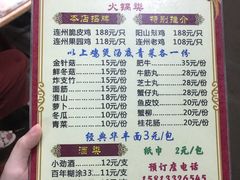 火锅类
本店招牌
特别推介
连州脆皮鸡 188元/只
连州果园鸡 118元/只
阳山敖鸡 188元/只
清远鸡 118元/只
以上鸡煲汤底青菜各一份
金针菇 15元/份
鲜冬菇 15元/份
炸支竹 15元/份
面筋 15元/份
淮山 15元/份
萝卜 15元/份
冬瓜 15元/份
青菜 15元/份
肥牛 35元/份
牛筋丸 25元/份
芝士丸 25元/份
墨鱼丸 25元/份
蟹仔丸 25元/份
鱼皮饺 25元/份
云吞 25元/份
桂花肠 20元/份
经典华丰面3元/包
酒类
纸巾 2元/包
小劲酒 12元/支
百年糊涂 33元/支
预订座电话
15813326565